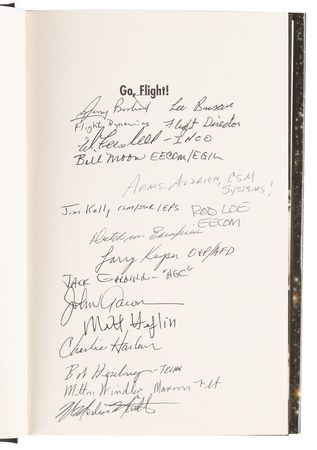 Go, Flight!
Jerry Bostick
Flight Dynamics
Lee Briscoe
Flight Director
INCO
Bill Moon EECOM/EGIL
ARNIE ALDRICH, CSM
SYSTEMS!
Jim Kelly CSM/EPS
ROD LOE
EECOM
Larry Keyser
JACK "AGC"
John Aaron
Milt Heflin
Charlie Harlan
Bob Heselmeyer - TELMU
Milton Windler Maroon Flt